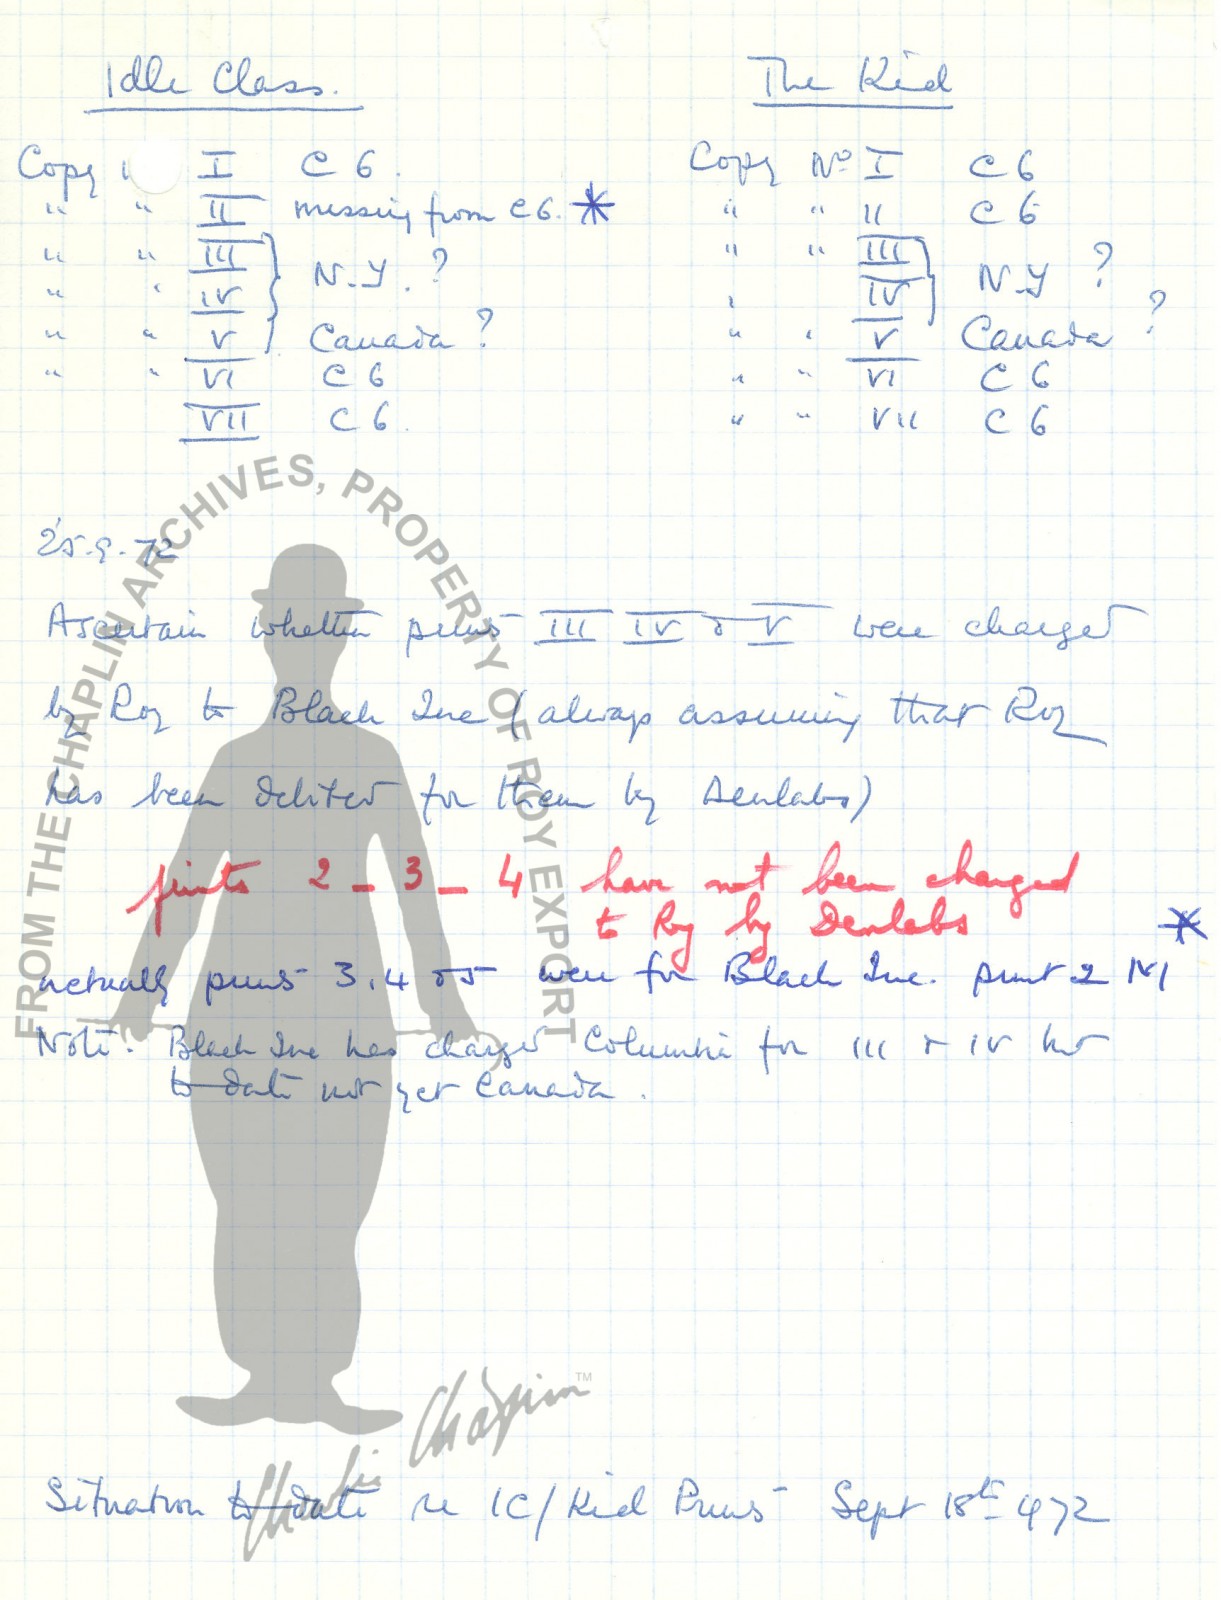 Idle Class.
Copy I C 6.
" " II missing from C6. *
" " III } N.Y. ?
" " IV
" " V Canada ?
" " VI C 6
VII C 6.
The Kid
Copy Nº I C 6
" " II C 6
" " III } N.Y ?
" IV
" " V Canada ?
" " VI C 6
" " VII C 6
25.9.72
Ascertain whether prints III IV & V were charged
by Roy to Black Inc (always assuming that Roy
has been debited for them by Denlabs)
prints 2 - 3 - 4 have not been charged
to Roy by Denlabs *
actually prints 3, 4 & 5 were for Black Inc. print 2
Note. Black Inc has charged Columbia for III & IV but
to date not yet Canada.
Situation to date re IC/Kid Prints Sept 18th 972
FROM THE CHAPLIN ARCHIVES, PROPERTY OF ROY EXPORT
Charlie Chaplin TM